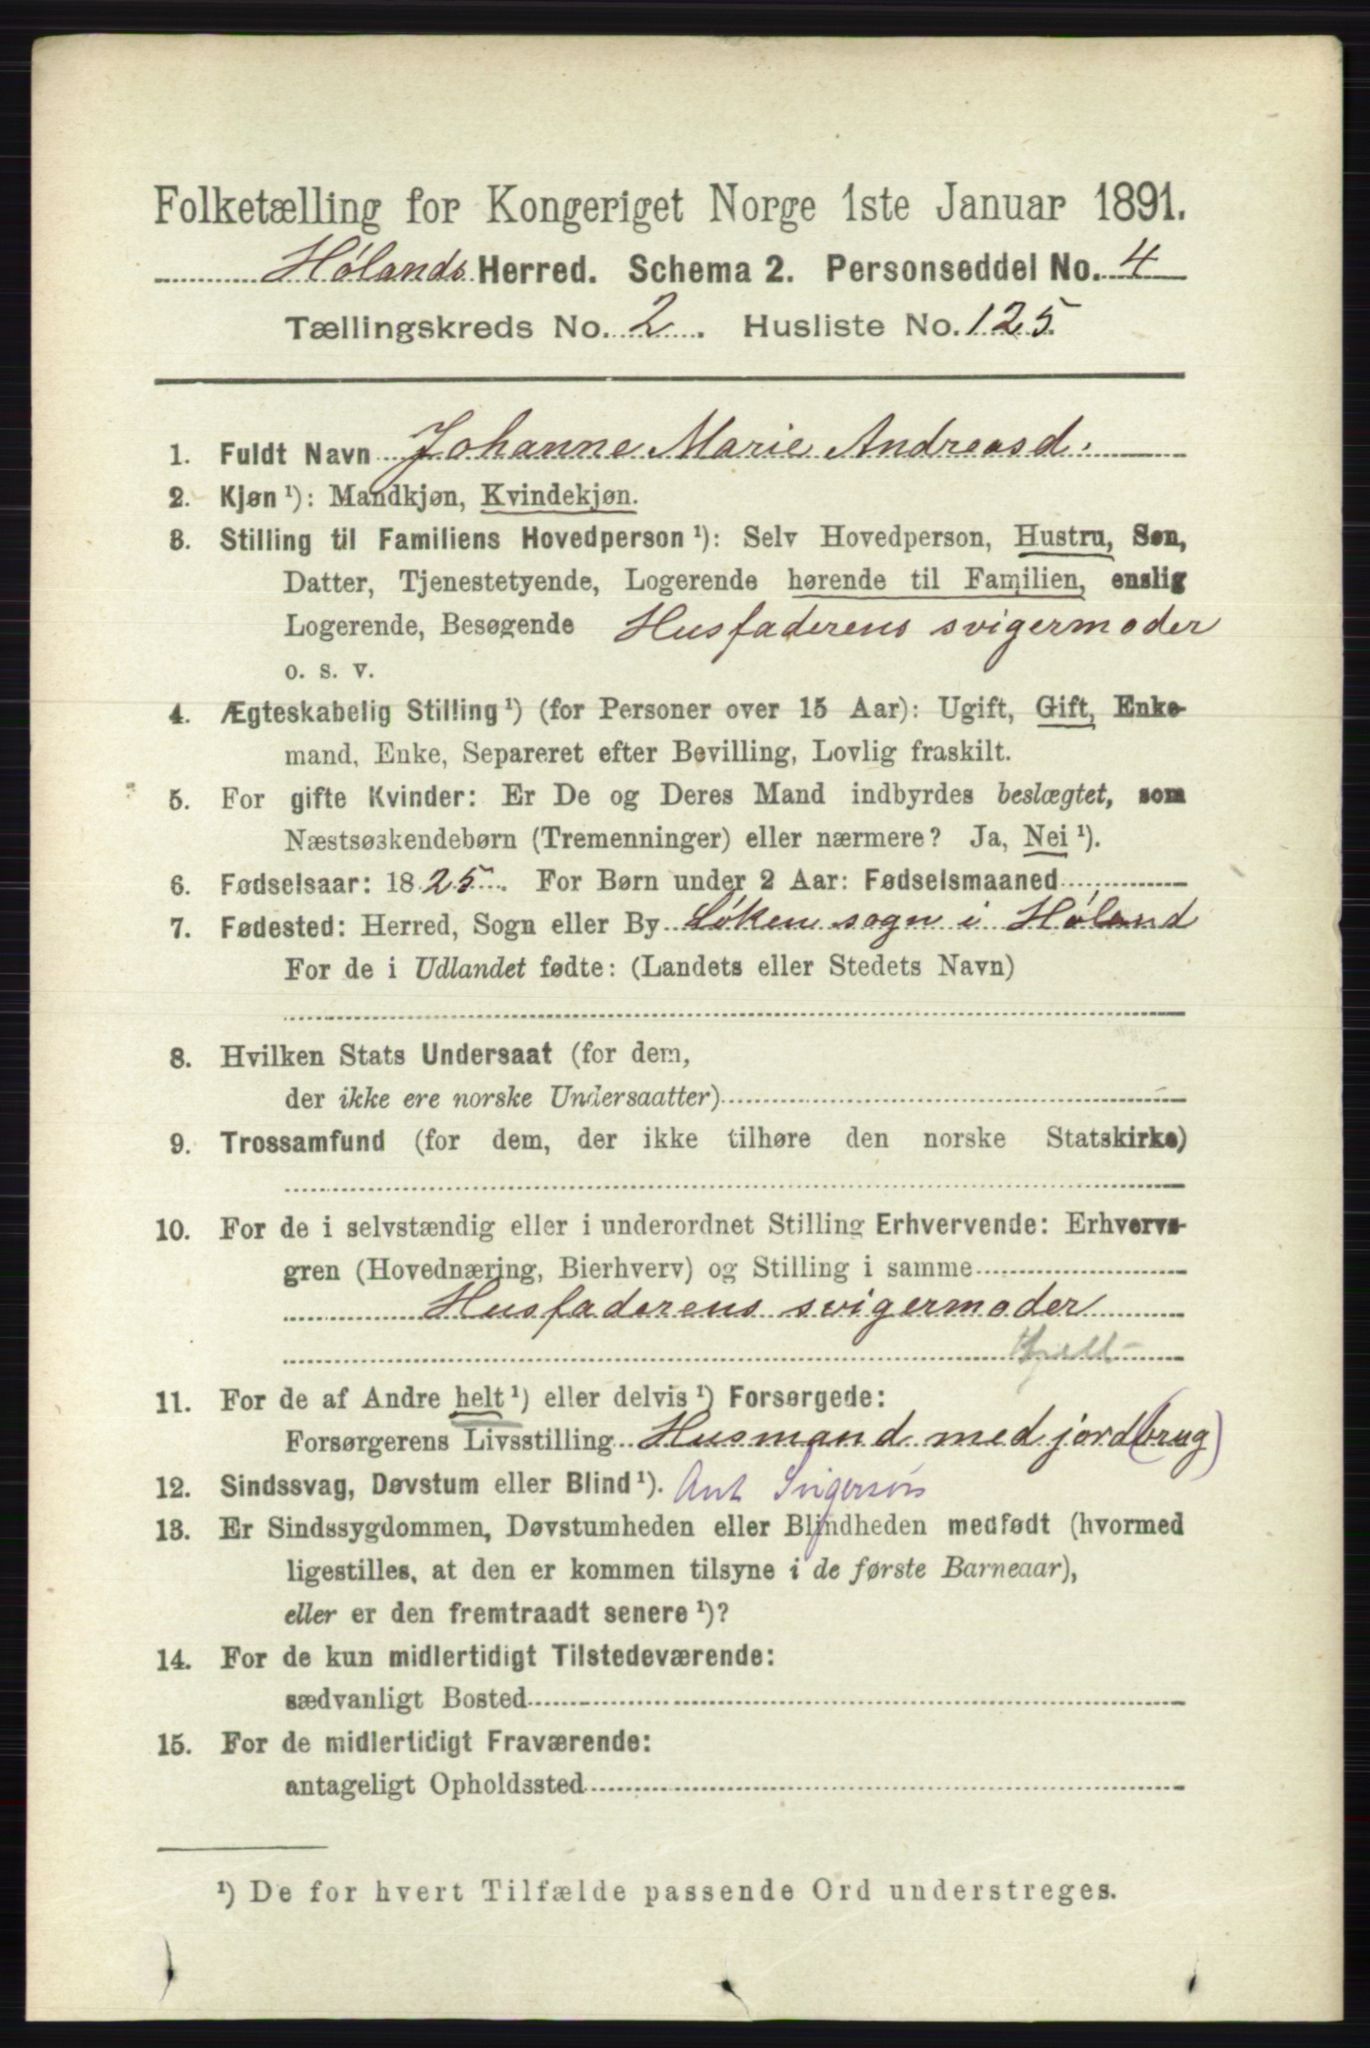 Folketælling for Kongeriget Norge 1ste Januar 1891.
Hølands Herred. Schema 2. Personseddel No. 4
Tællingskreds No. 2. Husliste No. 125.
1. Fuldt Navn Johanne Marie Andreasd.
2. Kjøn ¹): Mandkjøn, Kvindekjøn.
3. Stilling til Familiens Hovedperson ¹): Selv Hovedperson, Hustru, Søn,
Datter, Tjenestetyende, Logerende hørende til Familien, enslig
Logerende, Besøgende Husfaderens svigermoder
o. s. v.
4. Ægteskabelig Stilling ¹) (for Personer over 15 Aar): Ugift, Gift, Enke-
mand, Enke, Separeret efter Bevilling, Lovlig fraskilt.
5. For gifte Kvinder: Er De og Deres Mand indbyrdes beslægtet, som
Næstsøskendebørn (Tremenninger) eller nærmere? Ja, Nei ¹).
6. Fødselsaar: 1825. For Børn under 2 Aar: Fødselsmaaned
7. Fødested: Herred, Sogn eller By Løken sogn i Høland
For de i Udlandet fødte: (Landets eller Stedets Navn)
8. Hvilken Stats Undersaat (for dem,
der ikke ere norske Undersaatter)
9. Trossamfund (for dem, der ikke tilhøre den norske Statskirke)
10. For de i selvstændig eller i underordnet Stilling Erhvervende: Erhvervs-
gren (Hovednæring, Bierhverv) og Stilling i samme
Husfaderens svigermoder
11. For de af Andre helt ¹) eller delvis ¹) Forsørgede:
Forsørgerens Livsstilling Husmand med jord(brug)
12. Sindssvag, Døvstum eller Blind ¹). Ant Svigersøn
13. Er Sindssygdommen, Døvstumheden eller Blindheden medfødt (hvormed
ligestilles, at den er kommen tilsyne i de første Barneaar),
eller er den fremtraadt senere ¹)?
14. For de kun midlertidigt Tilstedeværende:
sædvanligt Bosted
15. For de midlertidigt Fraværende:
antageligt Opholdssted
¹) De for hvert Tilfælde passende Ord understreges.